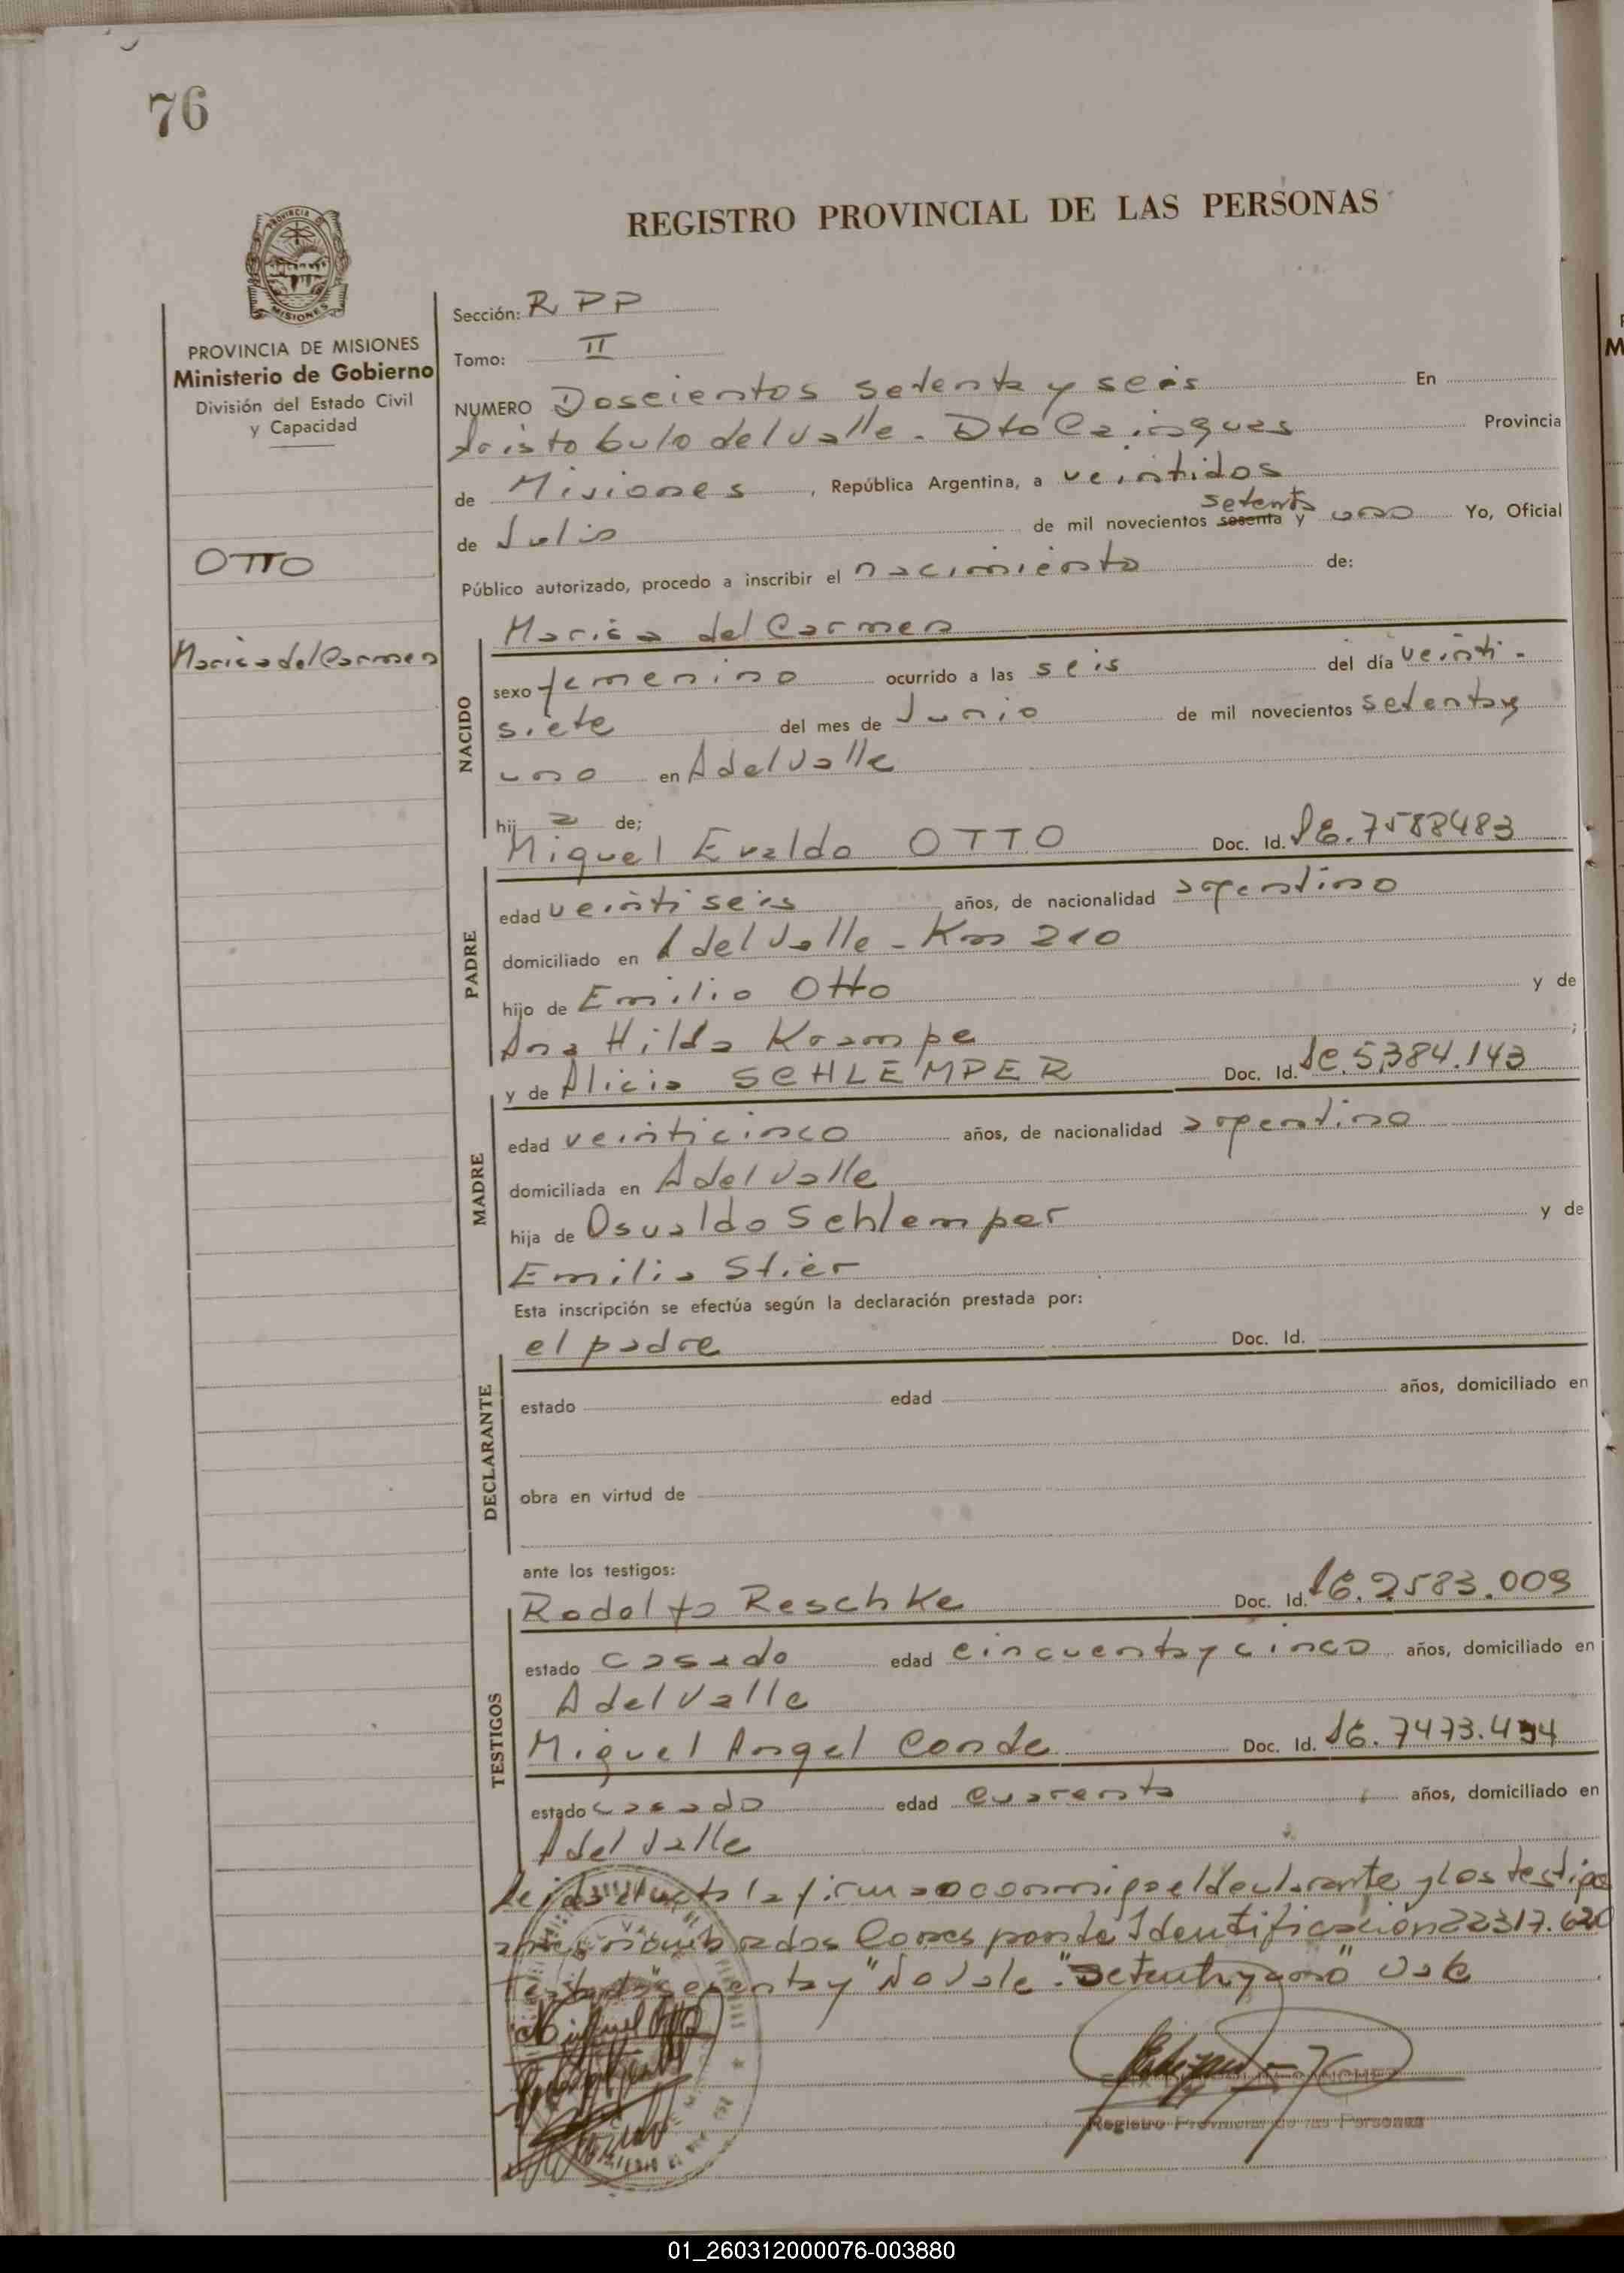 76
REGISTRO PROVINCIAL DE LAS PERSONAS
PROVINCIA DE MISIONES
Ministerio de Gobierno
División del Estado Civil
y Capacidad
OTTO
Marisa del Carmen
Sección: R P P
Tomo: II
NUMERO Doscientos setenta y seis En
Aristobulo del Valle - Dto Cainguas Provincia
de Misiones, República Argentina, a veintidos
setenta
de Julio de mil novecientos sesenta y uno Yo, Oficial
Público autorizado, procedo a inscribir el nacimiento de:
Marisa del Carmen
NACIDO
sexo femenino ocurrido a las seis del día veinti-
siete del mes de Junio de mil novecientos setenta y
uno en A del Valle
hij a de;
Miguel Evaldo OTTO Doc. Id. 7588483
PADRE
edad veinti seis años, de nacionalidad argentino
domiciliado en A del Valle - Km 210
hijo de Emilio Otto y de
Ana Hilda Krampe ;
y de Alicia SCHLEMPER Doc. Id. 5,384.143
MADRE
edad veinticinco años, de nacionalidad argentina
domiciliada en A del Valle
hija de Osvaldo Schlemper y de
Emilia Stier
Esta inscripción se efectúa según la declaración prestada por:
el padre Doc. Id.
DECLARANTE
estado edad años, domiciliado en
obra en virtud de
ante los testigos:
Rodolfo Reschke Doc. Id. 2583.009
TESTIGOS
estado casado edad cincuenta y cinco años, domiciliado en
A del Valle
Miguel Angel Conde Doc. Id. 7473.494
estado casado edad cuarenta años, domiciliado en
A del Valle
Leida el acta la firman conmigo el declarante y los testigos
antes nombrados Corresponde Identificación 22317.620
Testado "sesenta y" No Vale - "Setenta y uno" Vale
Miguel Otto
Registro Provincial de las Personas
01_260312000076-003880